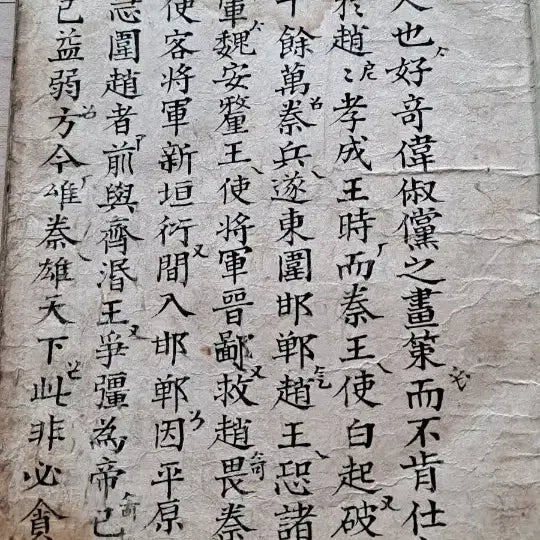 人也好奇偉俶儻之畫策而不肯仕
於趙〻孝成王時而秦王使白起破
十餘萬秦兵遂東圍邯鄲趙王恐諸
軍魏安釐王使將軍晉鄙救趙畏秦
使客將軍新垣衍間入邯鄲因平原
急圍趙者前與齊湣王爭彊為帝已
已益弱方今雄秦雄天下此非必貪